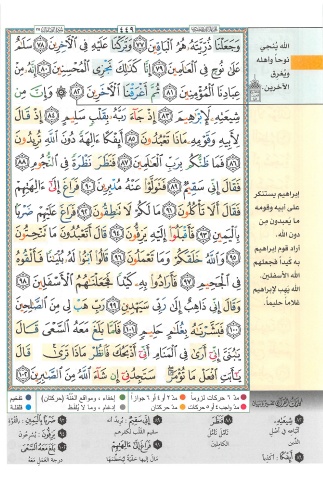 ٤٤٩
وَجَعَلْنَا ذُرِّيَّتَهُۥ هُمُ ٱلْبَاقِينَ ٧٧ وَتَرَكْنَا عَلَيْهِ فِى ٱلْءَاخِرِينَ ٧٨ سَلَٰمٌ
عَلَىٰ نُوحٍ فِى ٱلْعَٰلَمِينَ ٧٩ إِنَّا كَذَٰلِكَ نَجْزِى ٱلْمُحْسِنِينَ ٨٠ إِنَّهُۥ مِنْ
عِبَادِنَا ٱلْمُؤْمِنِينَ ٨١ ثُمَّ أَغْرَقْنَا ٱلْءَاخَرِينَ ٨٢ وَإِنَّ مِن
شِيعَتِهِۦ لَإِبْرَٰهِيمَ ٨٣ إِذْ جَآءَ رَبَّهُۥ بِقَلْبٍ سَلِيمٍ ٨٤ إِذْ قَالَ
لِأَبِيهِ وَقَوْمِهِۦ مَاذَا تَعْبُدُونَ ٨٥ أَئِفْكًا ءَالِهَةً دُونَ ٱللَّهِ تُرِيدُونَ
٨٦ فَمَا ظَنُّكُم بِرَبِّ ٱلْعَٰلَمِينَ ٨٧ فَنَظَرَ نَظْرَةً فِى ٱلنُّجُومِ ٨٨
فَقَالَ إِنِّى سَقِيمٌ ٨٩ فَتَوَلَّوْا۟ عَنْهُ مُدْبِرِينَ ٩٠ فَرَاغَ إِلَىٰٓ ءَالِهَتِهِمْ
فَقَالَ أَلَا تَأْكُلُونَ ٩١ مَا لَكُمْ لَا تَنطِقُونَ ٩٢ فَرَاغَ عَلَيْهِمْ ضَرْبًۢا
بِٱلْيَمِينِ ٩٣ فَأَقْبَلُوٓا۟ إِلَيْهِ يَزِفُّونَ ٩٤ قَالَ أَتَعْبُدُونَ مَا تَنْحِتُونَ
٩٥ وَٱللَّهُ خَلَقَكُمْ وَمَا تَعْمَلُونَ ٩٦ قَالُوا۟ ٱبْنُوا۟ لَهُۥ بُنْيَٰنًا فَأَلْقُوهُ
فِى ٱلْجَحِيمِ ٩٧ فَأَرَادُوا۟ بِهِۦ كَيْدًا فَجَعَلْنَٰهُمُ ٱلْأَسْفَلِينَ ٩٨
وَقَالَ إِنِّى ذَاهِبٌ إِلَىٰ رَبِّى سَيَهْدِينِ ٩٩ رَبِّ هَبْ لِى مِنَ ٱلصَّٰلِحِينَ
١٠٠ فَبَشَّرْنَٰهُ بِغُلَٰمٍ حَلِيمٍ ١٠١ فَلَمَّا بَلَغَ مَعَهُ ٱلسَّعْىَ قَالَ
يَٰبُنَىَّ إِنِّىٓ أَرَىٰ فِى ٱلْمَنَامِ أَنِّىٓ أَذْبَحُكَ فَٱنظُرْ مَاذَا تَرَىٰ قَالَ
يَٰٓأَبَتِ ٱفْعَلْ مَا تُؤْمَرُ سَتَجِدُنِىٓ إِن شَآءَ ٱللَّهُ مِنَ ٱلصَّٰبِرِينَ ١٠٢
الله يُنجي
نوحاً وأهله
ويُغرق
الآخرين
إبراهيم يستنكر
على أبيه وقومه
ما يعبدون من
دون الله.
أراد قوم إبراهيم
به كيداً فجعلهم
الله الأسفلين.
الله يهب لإبراهيم
غلاماً حليماً.
مد ٦ حركات لزوماً مد ٢ أو ٤ أو ٦ جوازاً إخفاء، ومواقع الغنّة (حركتان) تفخيم
مد واجب ٤ أو ٥ حركات مد حركتان إدغام، وما لا يُلفظ قلقلة